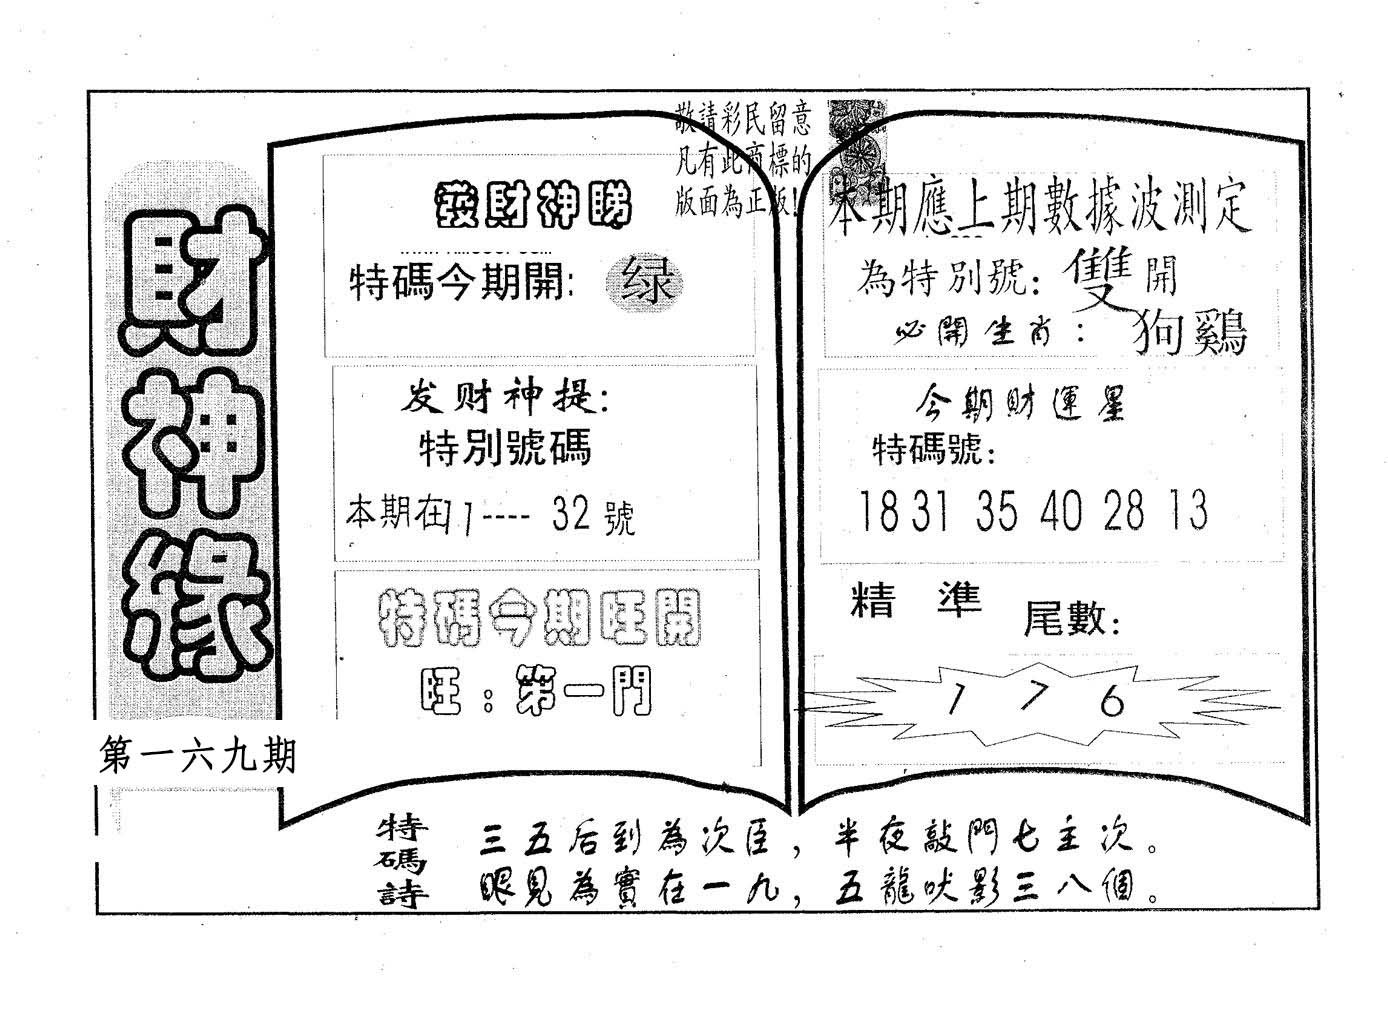 財神緣
第一六九期
敬請彩民留意
凡有此商標的
版面為正版!
發財神睇
特碼今期開:
绿
发财神提:
特別號碼
本期在11---- 32 號
特碼今期旺開
旺:第一門
本期應上期數據波測定
為特別號: 雙 開
必開生肖: 狗鷄
今期財運星
特碼號:
18 31 35 40 28 13
精 準 尾數:
1 7 6
特碼詩
三五后到為次臣,半夜敲門七主次。
眼見為實在一九,五龍吠影三八個。